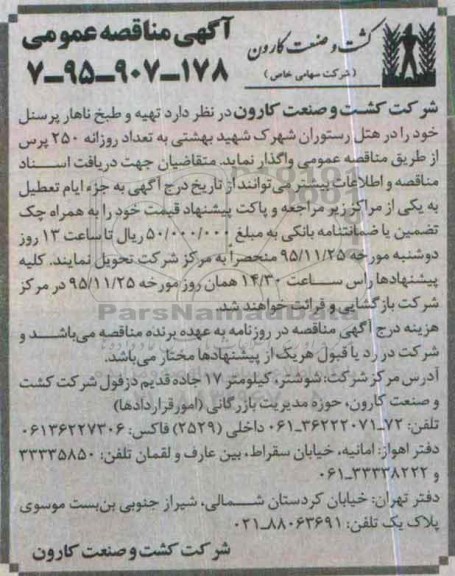 آگهی مناقصه عمومی
۷-۹۵-۹۰۷-۱۷۸
کشت و صنعت کارون
(شرکت سهامی خاص)
شرکت کشت و صنعت کارون در نظر دارد تهیه و طبخ ناهار پرسنل
خود را در هتل رستوران شهرک شهید بهشتی به تعداد روزانه ۲۵۰ پرس
از طریق مناقصه عمومی واگذار نماید. متقاضیان جهت دریافت اسناد
مناقصه و اطلاعات بیشتر می‌توانند از تاریخ درج آگهی به جزء ایام تعطیل
به یکی از مراکز زیر مراجعه و پاکت پیشنهاد قیمت خود را به همراه چک
تضمین یا ضمانتنامه بانکی به مبلغ ۵۰/۰۰۰/۰۰۰ ریال تا ساعت ۱۳ روز
دوشنبه مورخه ۹۵/۱۱/۲۵ منحصراً به مرکز شرکت تحویل نمایند. کلیه
پیشنهادها راس ساعت ۱۴/۳۰ همان روز مورخه ۹۵/۱۱/۲۵ در مرکز
شرکت بازگشایی و قرائت خواهند شد.
ParsNamadData
هزینه درج آگهی مناقصه در روزنامه به عهده برنده مناقصه می‌باشد و
شرکت در رد یا قبول هریک از پیشنهادها مختار می‌باشد.
آدرس مرکز شرکت: شوشتر، کیلومتر ۱۷ جاده قدیم دزفول شرکت کشت
و صنعت کارون، حوزه مدیریت بازرگانی (امور قراردادها)
تلفن: ۷۲-۳۶۲۲۲۰۷۱-۰۶۱ داخلی (۲۵۲۹) فاکس: ۰۶۱۳۶۲۲۷۳۰۶
دفتر اهواز: امانیه، خیابان سقراط، بین عارف و لقمان تلفن: ۳۳۳۳۵۸۵۰
و ۳۳۳۳۸۲۲۲-۰۶۱
دفتر تهران: خیابان کردستان شمالی، شیراز جنوبی بن‌بست موسوی
پلاک یک تلفن: ۸۸۰۶۳۶۹۱-۰۲۱
شرکت کشت و صنعت کارون